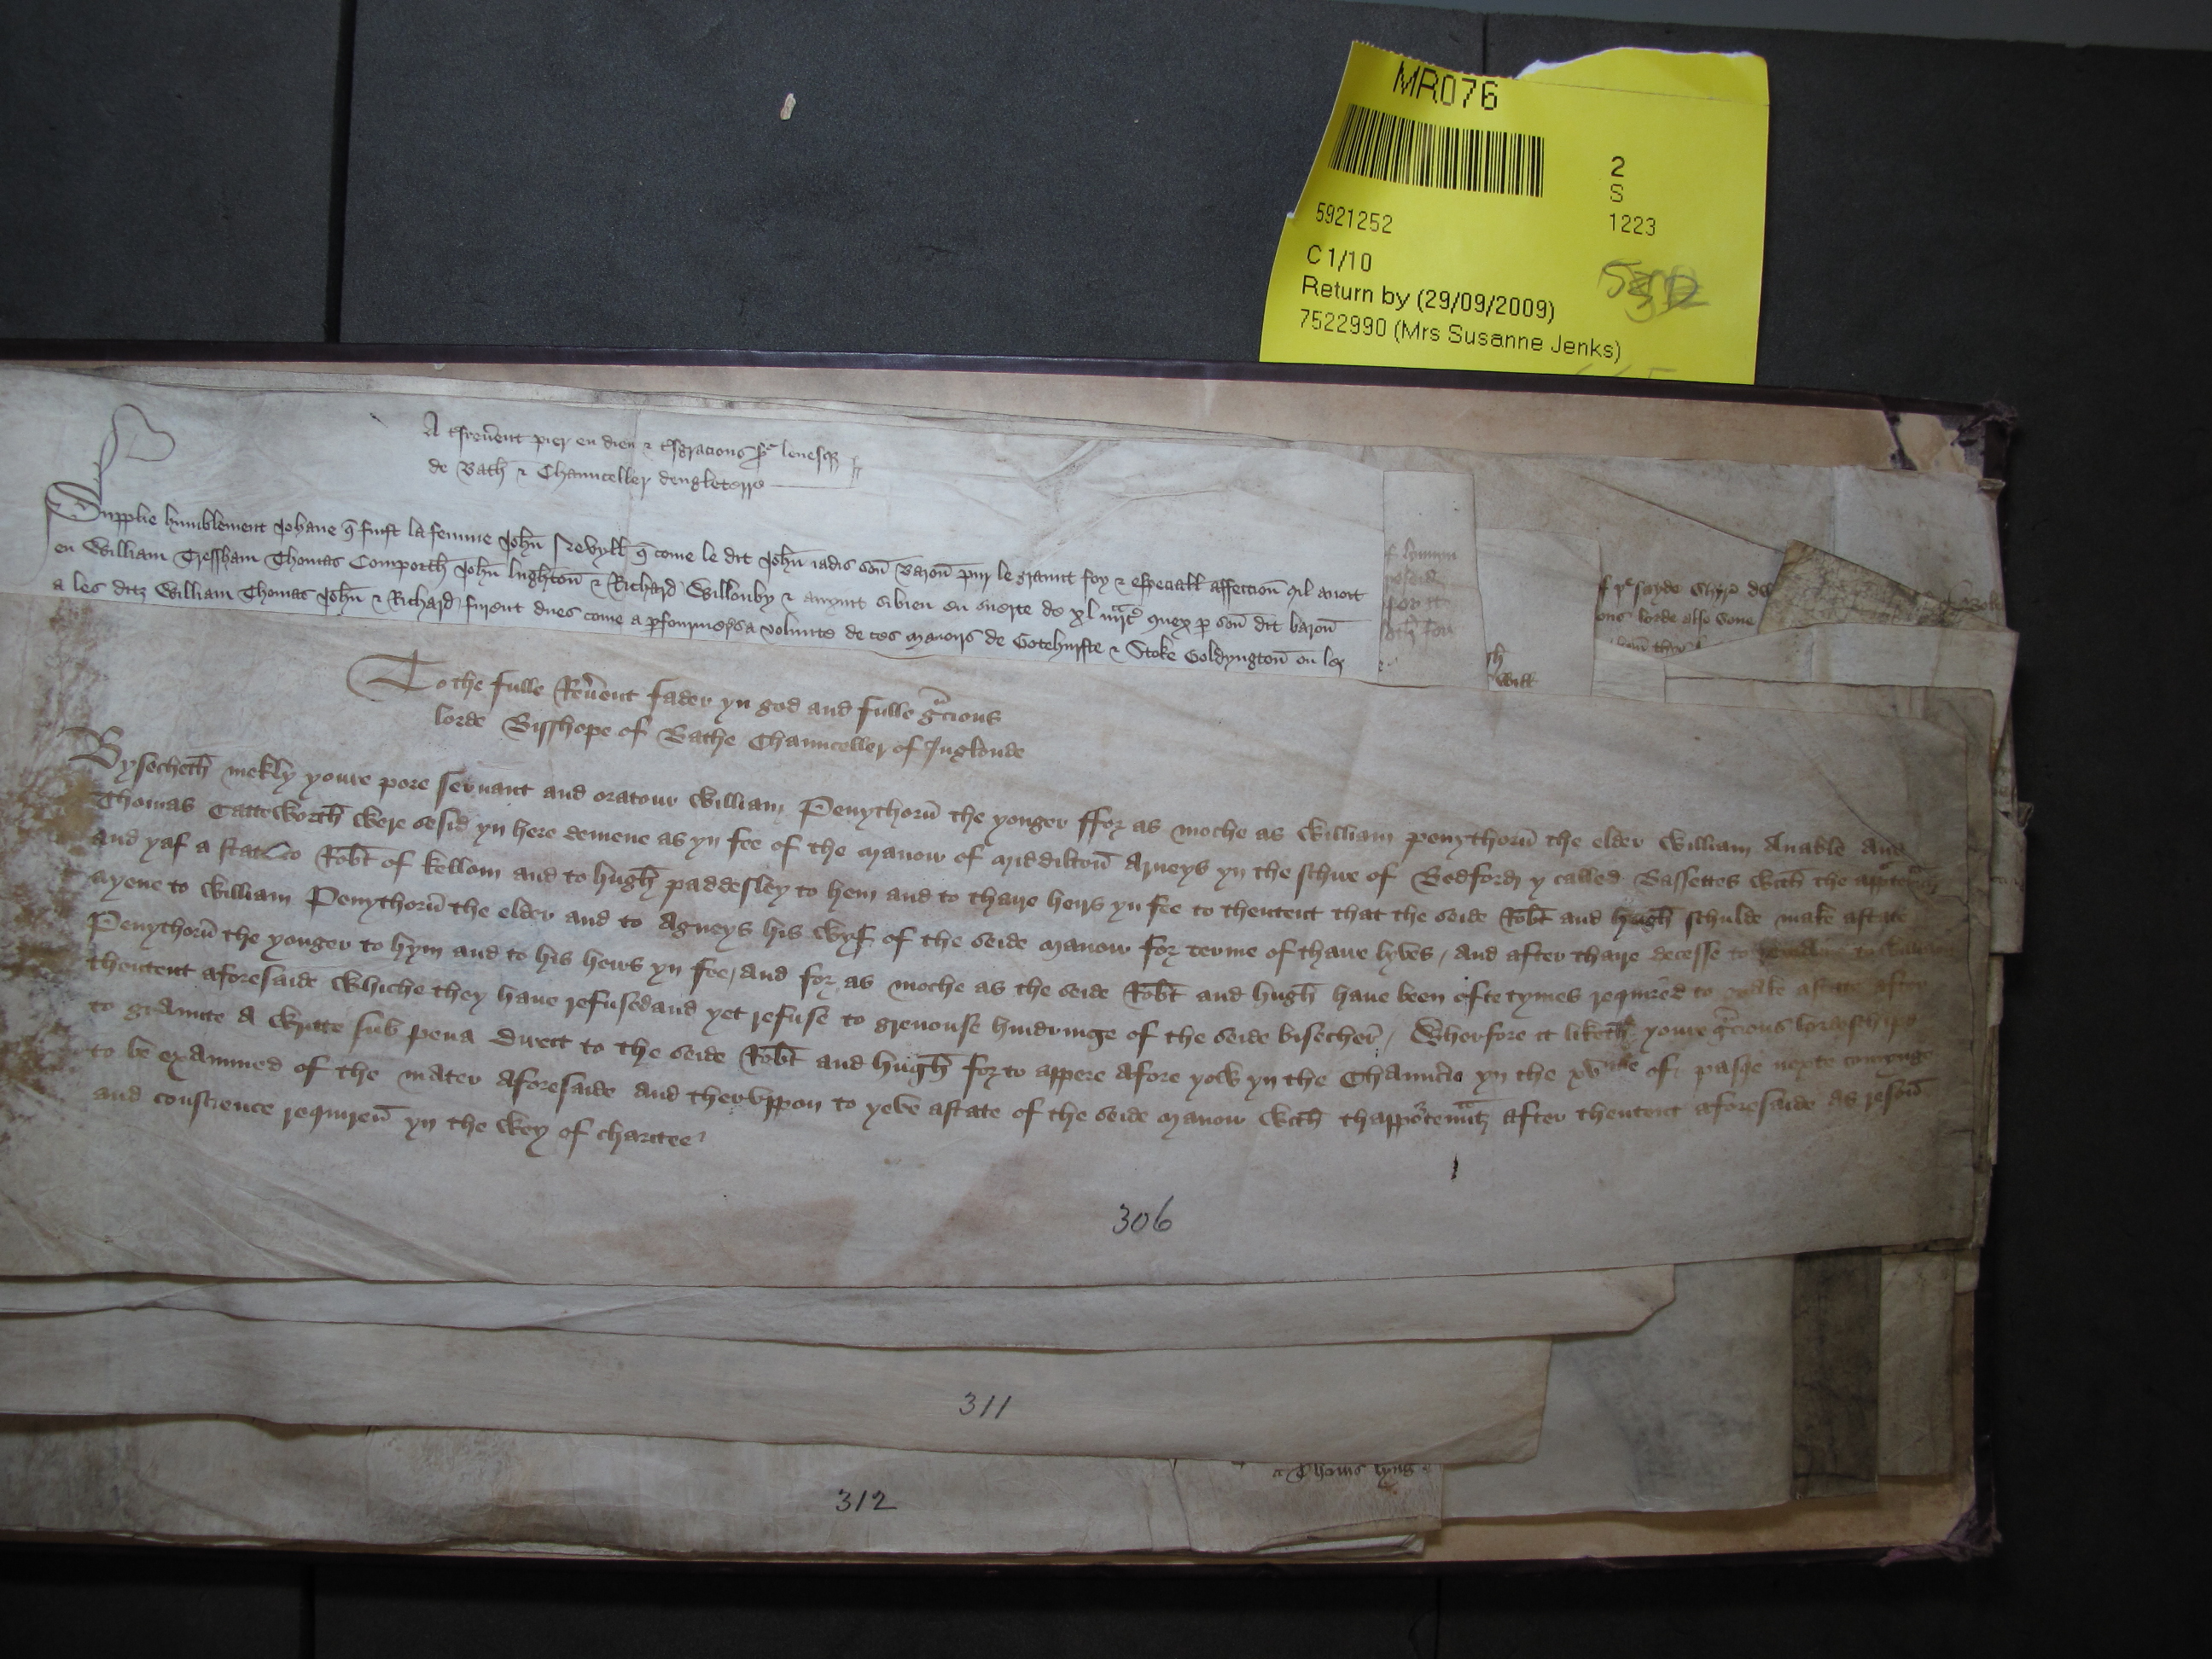 MR076
2
S
5921252
1223
C 1/10
Return by (29/09/2009)
7522990 (Mrs Susanne Jenks)
A tresreu̅ent pier en dieu & tresgracious sr levesqz
de Bath & Chaunceller dengleterre
Supplie humblement Johane q̅ fuist la femme Joh̅n Nevyll q̅ come le dit Joh̅n iadis son̅ baron̅ pur le graunt foy & especiall affeccion̅ qil avoit
en William Tressham Thomas Comporth̅ Joh̅n lughton̅ & Richard Willouby & auynt sibien en suerte de xl marcs queux p son̅ dit baron̅
a les ditz William Thomas Joh̅n & Richard furont dues come a pfourmer sa volunte de ces manoirs de Gotehurste & Stoke Goldyngton̅ en lez
of ye sayde Shyre
ons lorde also
Will
To the fulle Reu̅ent fader yn god and fulle gracious
lorde Bisshope of Bathe Chaunceller of Inglonde
Bysecheth̅ mekly youre pore servant and oratour William Penythorn̅ the yonger ffor as moche as William penythorn̅ the elder William Anable and
Thomas Catteworth̅ were sesid yn here demene as yn fee of the manour of middilton̅ Arneys yn the schire of Bedford y called Bassettes with̅ the appurtenantz
and yaf a stat to Rob̅t of kellom and to hugh̅ paddesley to hem and to thaire heirs yn fee to thentent that the seide Rob̅t and hugh̅ schulde make astate
ayene to William Penythorn̅ the elder and to Agneys his wyf of the seide manour for terme of thaire lyves / And after thaire decesse to to William
Penythorn̅ the yonger to hym and to his heirs yn fee / and for as moche as the seide Rob̅t and hugh̅ haue been ofte tymes required to make astate after
thentent aforesaide whiche they haue refused and yet refuse to grevouse hindringe of the seide bisecher̅ / Wherfore it liketh̅ youre gracious lordeschipe
to graunte A writte sub pena direct to the seide Rob̅t and hugh̅ for to appere afore yow yn the Chauncerie yn the xvme of pasqe nexte comynge
to be examined of the mater aforesaide and theruppon to yeve astate of the seide manour with̅ thappurtenantz after thentent aforesaide as reson̅
and conscience requiren̅ yn the wey of charitee
306
311
Thomas kyng
312